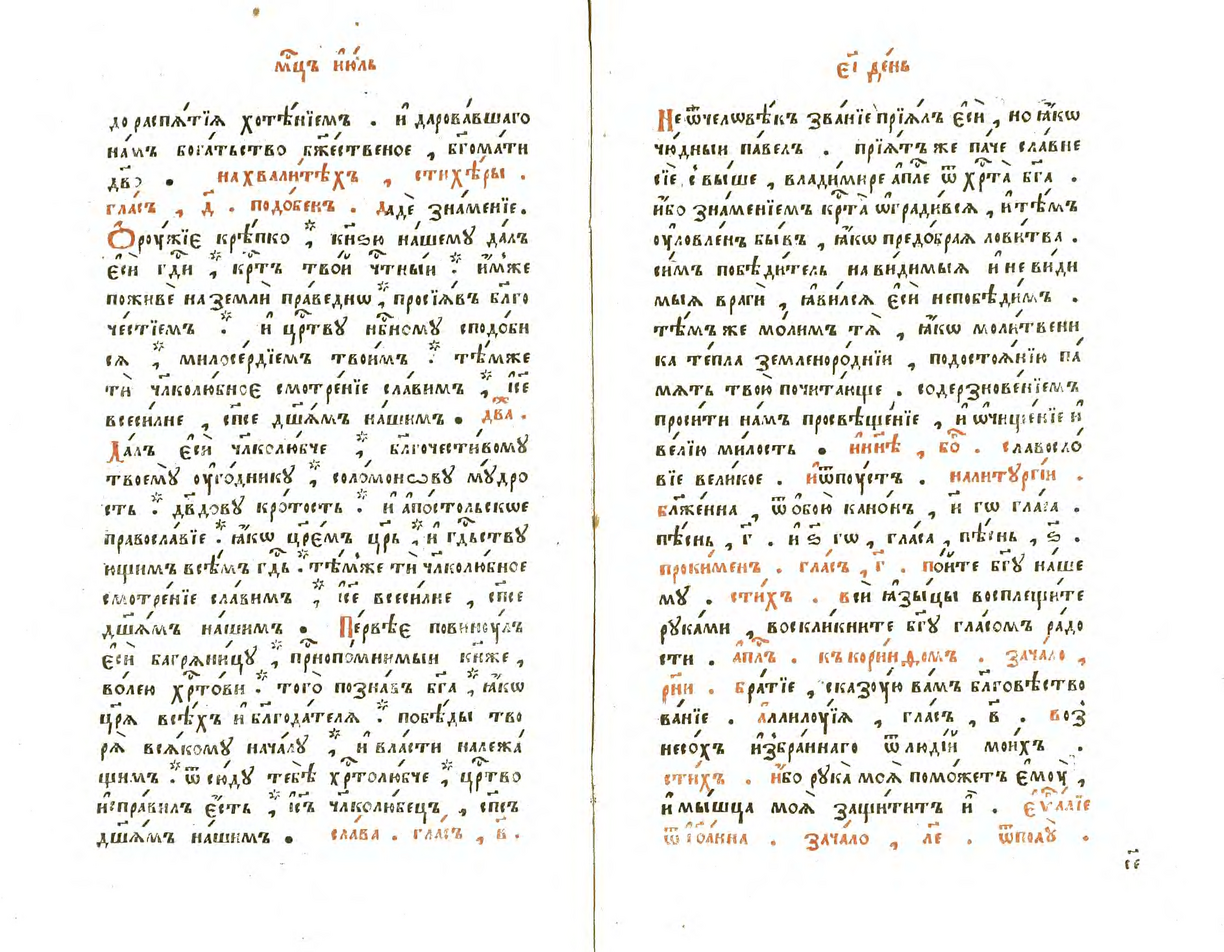 мц҃ъ и҆ю́ль
до распѧ́тїѧ хотѣ́нїемъ . и҆ дарова́вшаго
на́мъ бога́тьство бж҃е́ственое , бг҃ома́ти
дв҃о . на хвали́техъ , стихѣ́ры .
гла́съ , д҃ . подо́бенъ . Дадѐ зна́менїе .
Ѻ҆роу́жїе крѣ́пко , кн҃ѕю на́шемꙋ да́лъ
є҆сѝ гд҃и , кр҃тъ тво́й чт҃ны́й : и҆́мже
поживѐ на землѝ пра́веднѡ , просїѧ́въ бл҃го
че́стїемъ : и҆ цр҃твꙋ нб҃номꙋ сподо́би
сѧ , милосе́рдїемъ твои́мъ : тѣ́мже
тѝ чл҃колю́бное смотре́нїе сла́вимъ , і҆с҃е
всеси́лне , сп҃се дш҃а́мъ на́шимъ . два .
Да́лъ є҆сѝ чл҃колю́бче , бл҃гочести́вомꙋ
твоемꙋ̀ оу҆го́дникꙋ , соломо́новꙋ мꙋ́дро
сть : дв҃довꙋ кро́тость : и҆ а҆по́стольскѡе
правосла́вїе : ꙗ҆́кѡ цр҃е́мъ цр҃ь , и҆ гд҃ьствꙋ
ющимъ всѣ́мъ гд҃ь : тѣ́мже тѝ чл҃колю́бное
смотре́нїе сла́вимъ , і҆с҃е всеси́лне , сп҃се
дш҃а́мъ на́шимъ . Пе́рвѣе повинꙋ́лъ
є҆сѝ багрѧни́цꙋ , приснопо́мнимыи кн҃же ,
во́лею хр҃то́ви : того̀ позна́въ бг҃а , ꙗ҆́кѡ
цр҃ѧ̀ всѣ́хъ и҆ бл҃года́телѧ : побѣ́ды тво
рѧ̀ всѧ́комꙋ нача́лꙋ , и҆ вла́сти належа́
щимъ : ѿсю́дꙋ тебѣ̀ хр҃толю́бче , цр҃тво
и҆спра́вилъ є҆́сть , і҆с҃ъ чл҃колю́бецъ , сп҃съ
дш҃а́мъ на́шимъ . сла́ва . гла́съ , в҃ .
є҃і де́нь
Не ѿ челѡвѣ́къ зва́нїе прїѧ́лъ є҆сѝ , но ꙗ҆́кѡ
чю́дныи па́велъ . прїѧ́тъ же па́че сла́вне
сїѐ , свы́ше , влади́мире а҆пл҃е ѿ хр҃та̀ бг҃а .
и҆́бо зна́менїемъ кр҃та̀ ѡ҆гради́всѧ , и҆ тѣ́мъ
оу҆ло́вленъ бы́въ , ꙗ҆́кѡ предо́браѧ лови́тва .
си́мъ побѣди́тель на ви́димыѧ и҆ неви́ди
мыѧ врагѝ , ꙗ҆ви́лсѧ є҆сѝ непобѣди́мъ .
тѣ́мъ же мо́лимъ тѧ̀ , ꙗ҆́кѡ моли́твени
ка те́пла земленоро́днїи , по достоѧ́нїю па́
мѧть твою̀ почита́юще . со дерзнове́нїемъ
проси́ти на́мъ просвѣще́нїе , и҆ ѡ҆чище́нїе и҆
ве́лїю ми́лость . ны́нѣ , бо҃ . славосло́
вїе вели́кое . и҆ ѿпоу́стъ . на литꙋргі́и .
бл҃же́нна , ѿ ѻ҆бою̀ кано́нъ , и҆ гѡ гла́са .
пѣ́снь , г҃ . и҆ ѕ҃ гѡ , гла́са , пѣ́снь , ѕ҃ .
проки́менъ . гла́съ , г҃ . по́ите бг҃ꙋ на́ше
мꙋ . сти́хъ . всѝ ꙗ҆зы́цы восплещи́те
рꙋка́ми , воскли́кните бг҃ꙋ гла́сомъ ра́до
сти . а҆пл҃ъ . къ кори́нѳомъ . зача́ло ,
рн҃и . бра́тїе , сказꙋ́ю ва́мъ бл҃говѣство
ва́нїе . а҆ллилоу́їѧ , гла́съ , в҃ . воз
несо́хъ и҆збра́ннаго ѿ людїй мои́хъ .
сти́хъ . и҆́бо рꙋка̀ моѧ̀ помо́жетъ є҆моу̀ ,
и҆ мы́шца моѧ̀ защити́тъ и҆̀ . є҆ѵⷢ҇а́лїе
ѿ і҆ѻа́нна . зача́ло , ле҃ . ѿ полꙋ̀ .